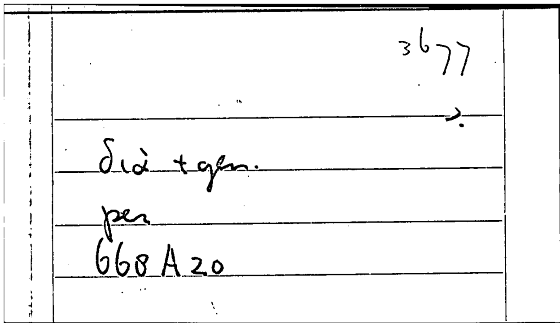 3677
διὰ + gen.
per
668 A 20